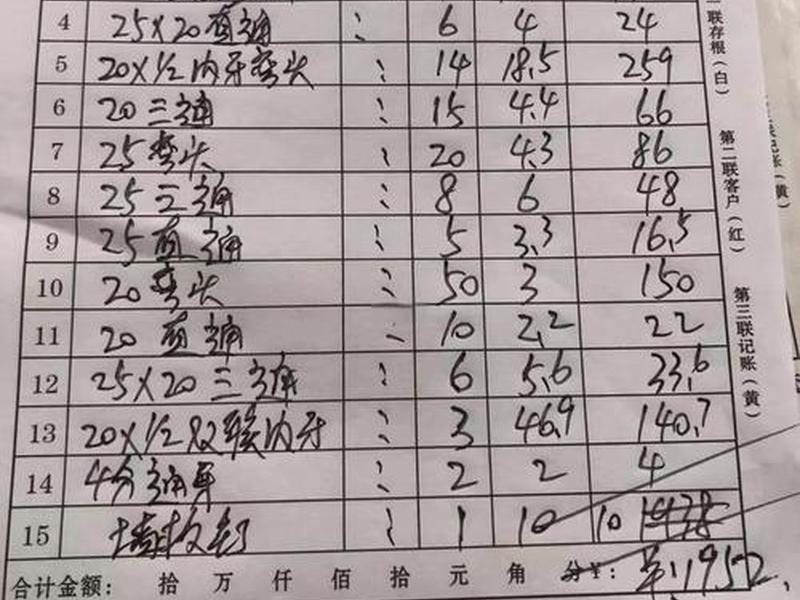 4 25×20直通 ; 6 4 24
5 20×1/2内牙弯头 ; 14 18.5 259
6 20三通 ; 15 4.4 66
7 25弯头 ; 20 4.3 86
8 25三通 ; 8 6 48
9 25直通 ; 5 3.3 16.5
10 20弯头 ; 50 3 150
11 20直通 ; 10 2.2 22
12 25×20三通 ; 6 5.6 33.6
13 20×1/2双联内牙 ; 3 46.9 140.7
14 4分 ; 2 2 4
15 ; 1 10 10
合计金额: 拾 万 仟 佰 拾 元 角 分 ¥:
联存根(白)
第二联客户(红)
第三联记账(黄)